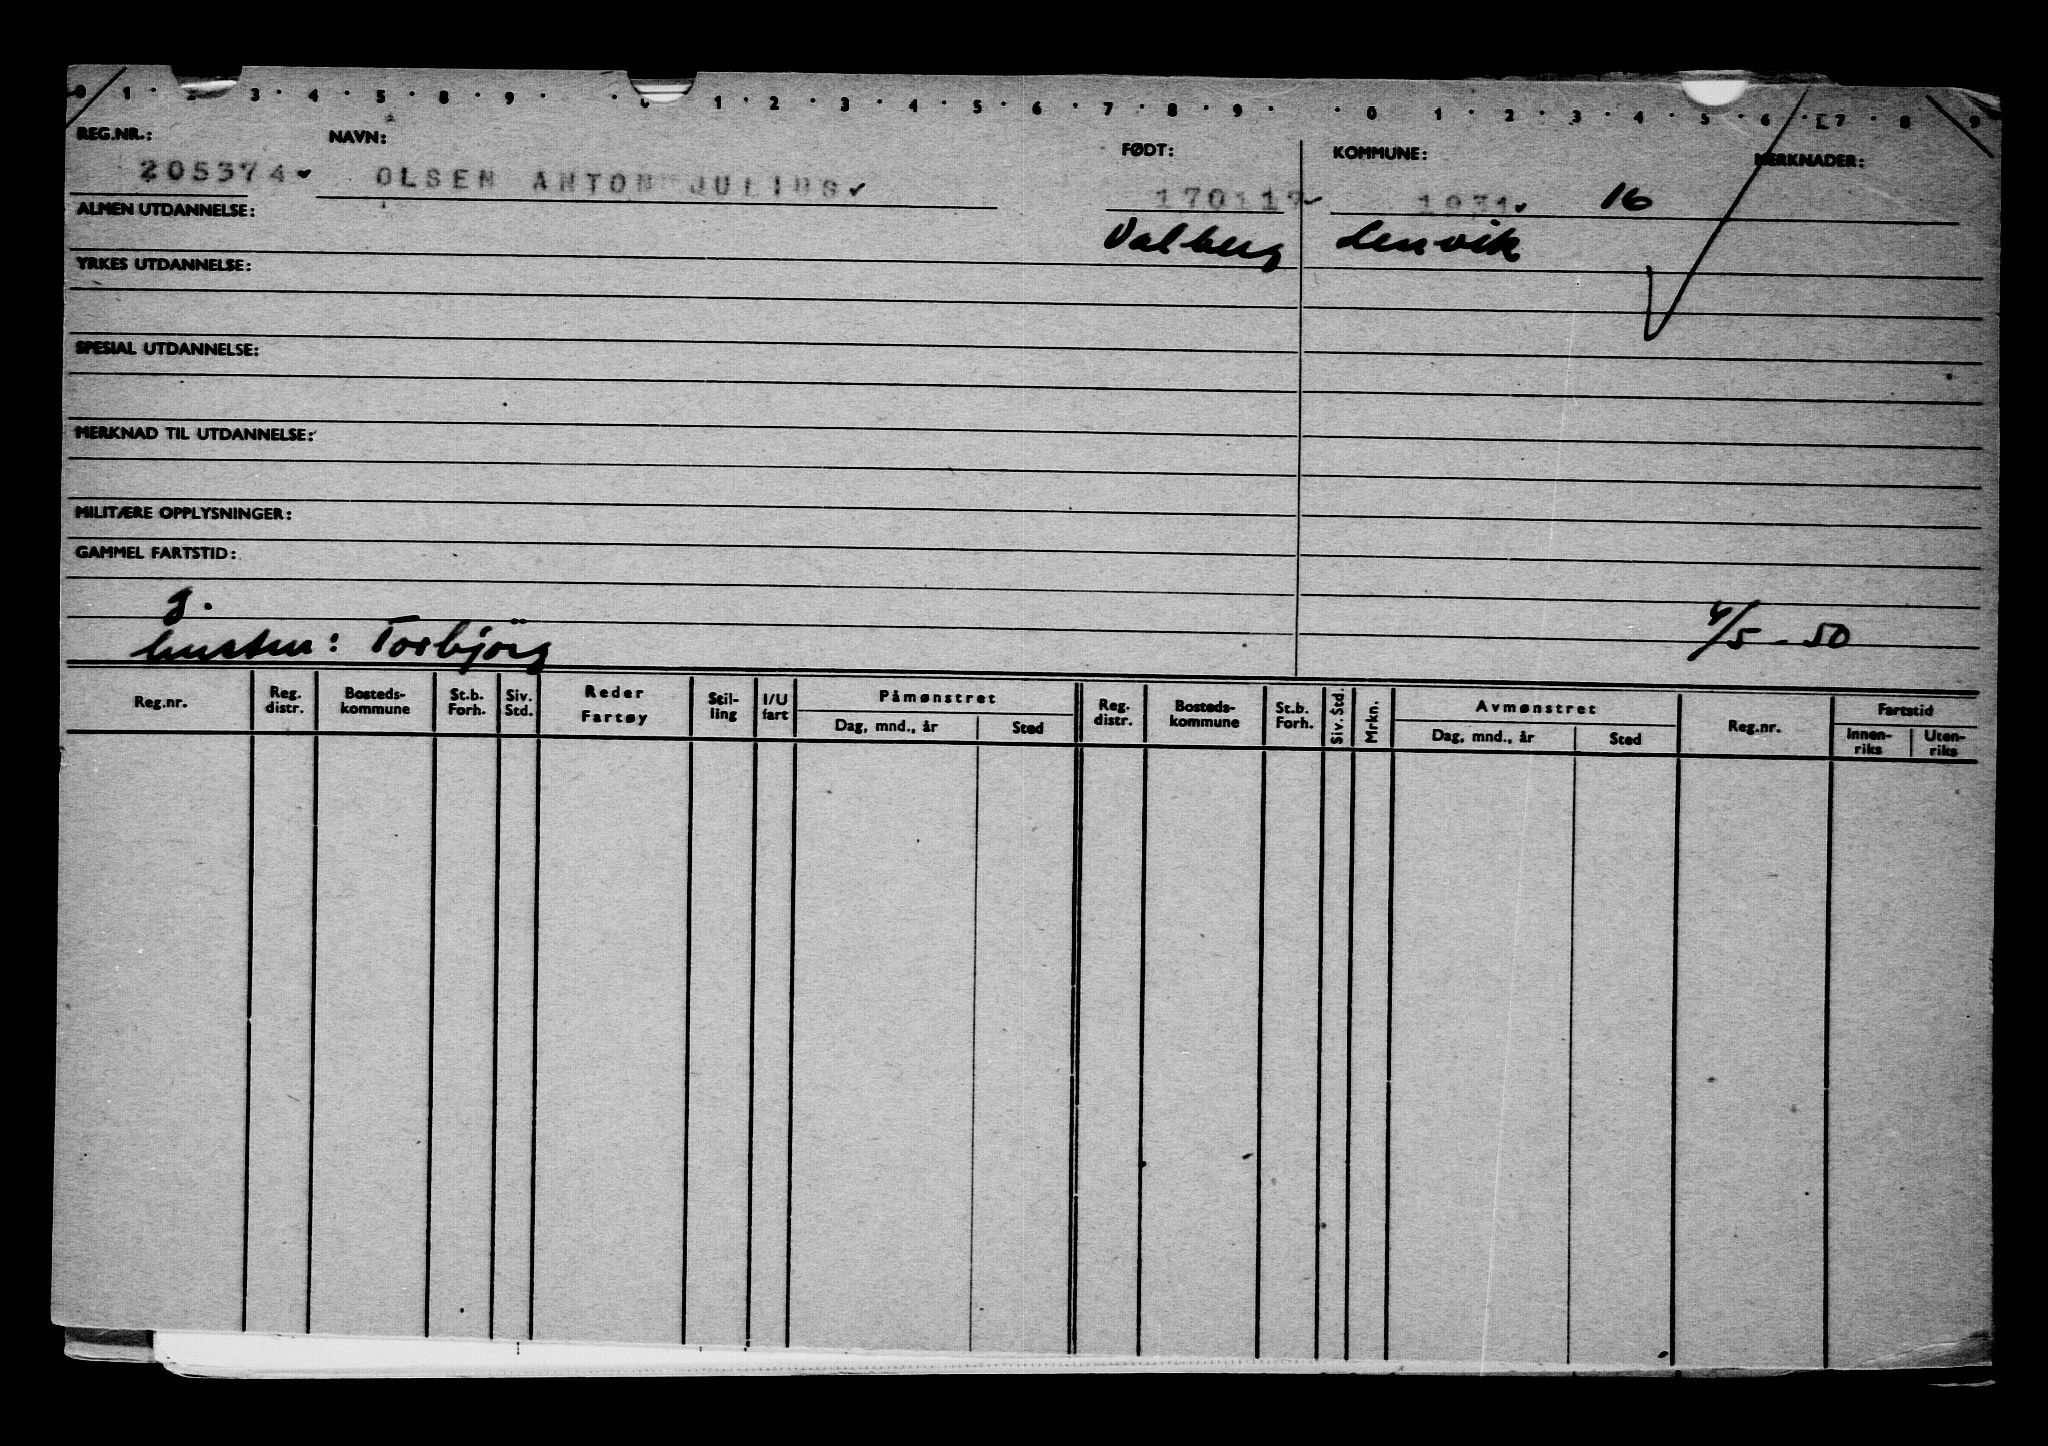 0 1 · 2 3 · 4 · 5 · 8 · 9 · · 0 1 · 2 · 3 · 4 · 5 · 6 · 7 · 8 · 9 · · 0 1 · 2 · 3 · 4 · 5 · 6 · 7 · 8 · 9
REG.NR.: NAVN: FØDT: KOMMUNE: MERKNADER:
205374 OLSEN ANTON JULIUS 170117 1931 16
ALMEN UTDANNELSE: Valberg Lenvik
YRKES UTDANNELSE:
SPESIAL UTDANNELSE:
MERKNAD TIL UTDANNELSE:
MILITÆRE OPPLYSNINGER:
GAMMEL FARTSTID:
g.
hustru: Torbjörg 4/5 - 50
Reg.nr. Reg. distr. Bosteds-kommune St.b. Forh. Siv. Std. Reder Fartøy Stil-ling I/U fart Påmønstret Dag, mnd., år Sted Reg. distr. Bosteds-kommune St.b. Forh. Siv. Std. Mrkn. Avmønstret Dag, mnd., år Sted Reg.nr. Fartstid Innen-riks Uten-riks